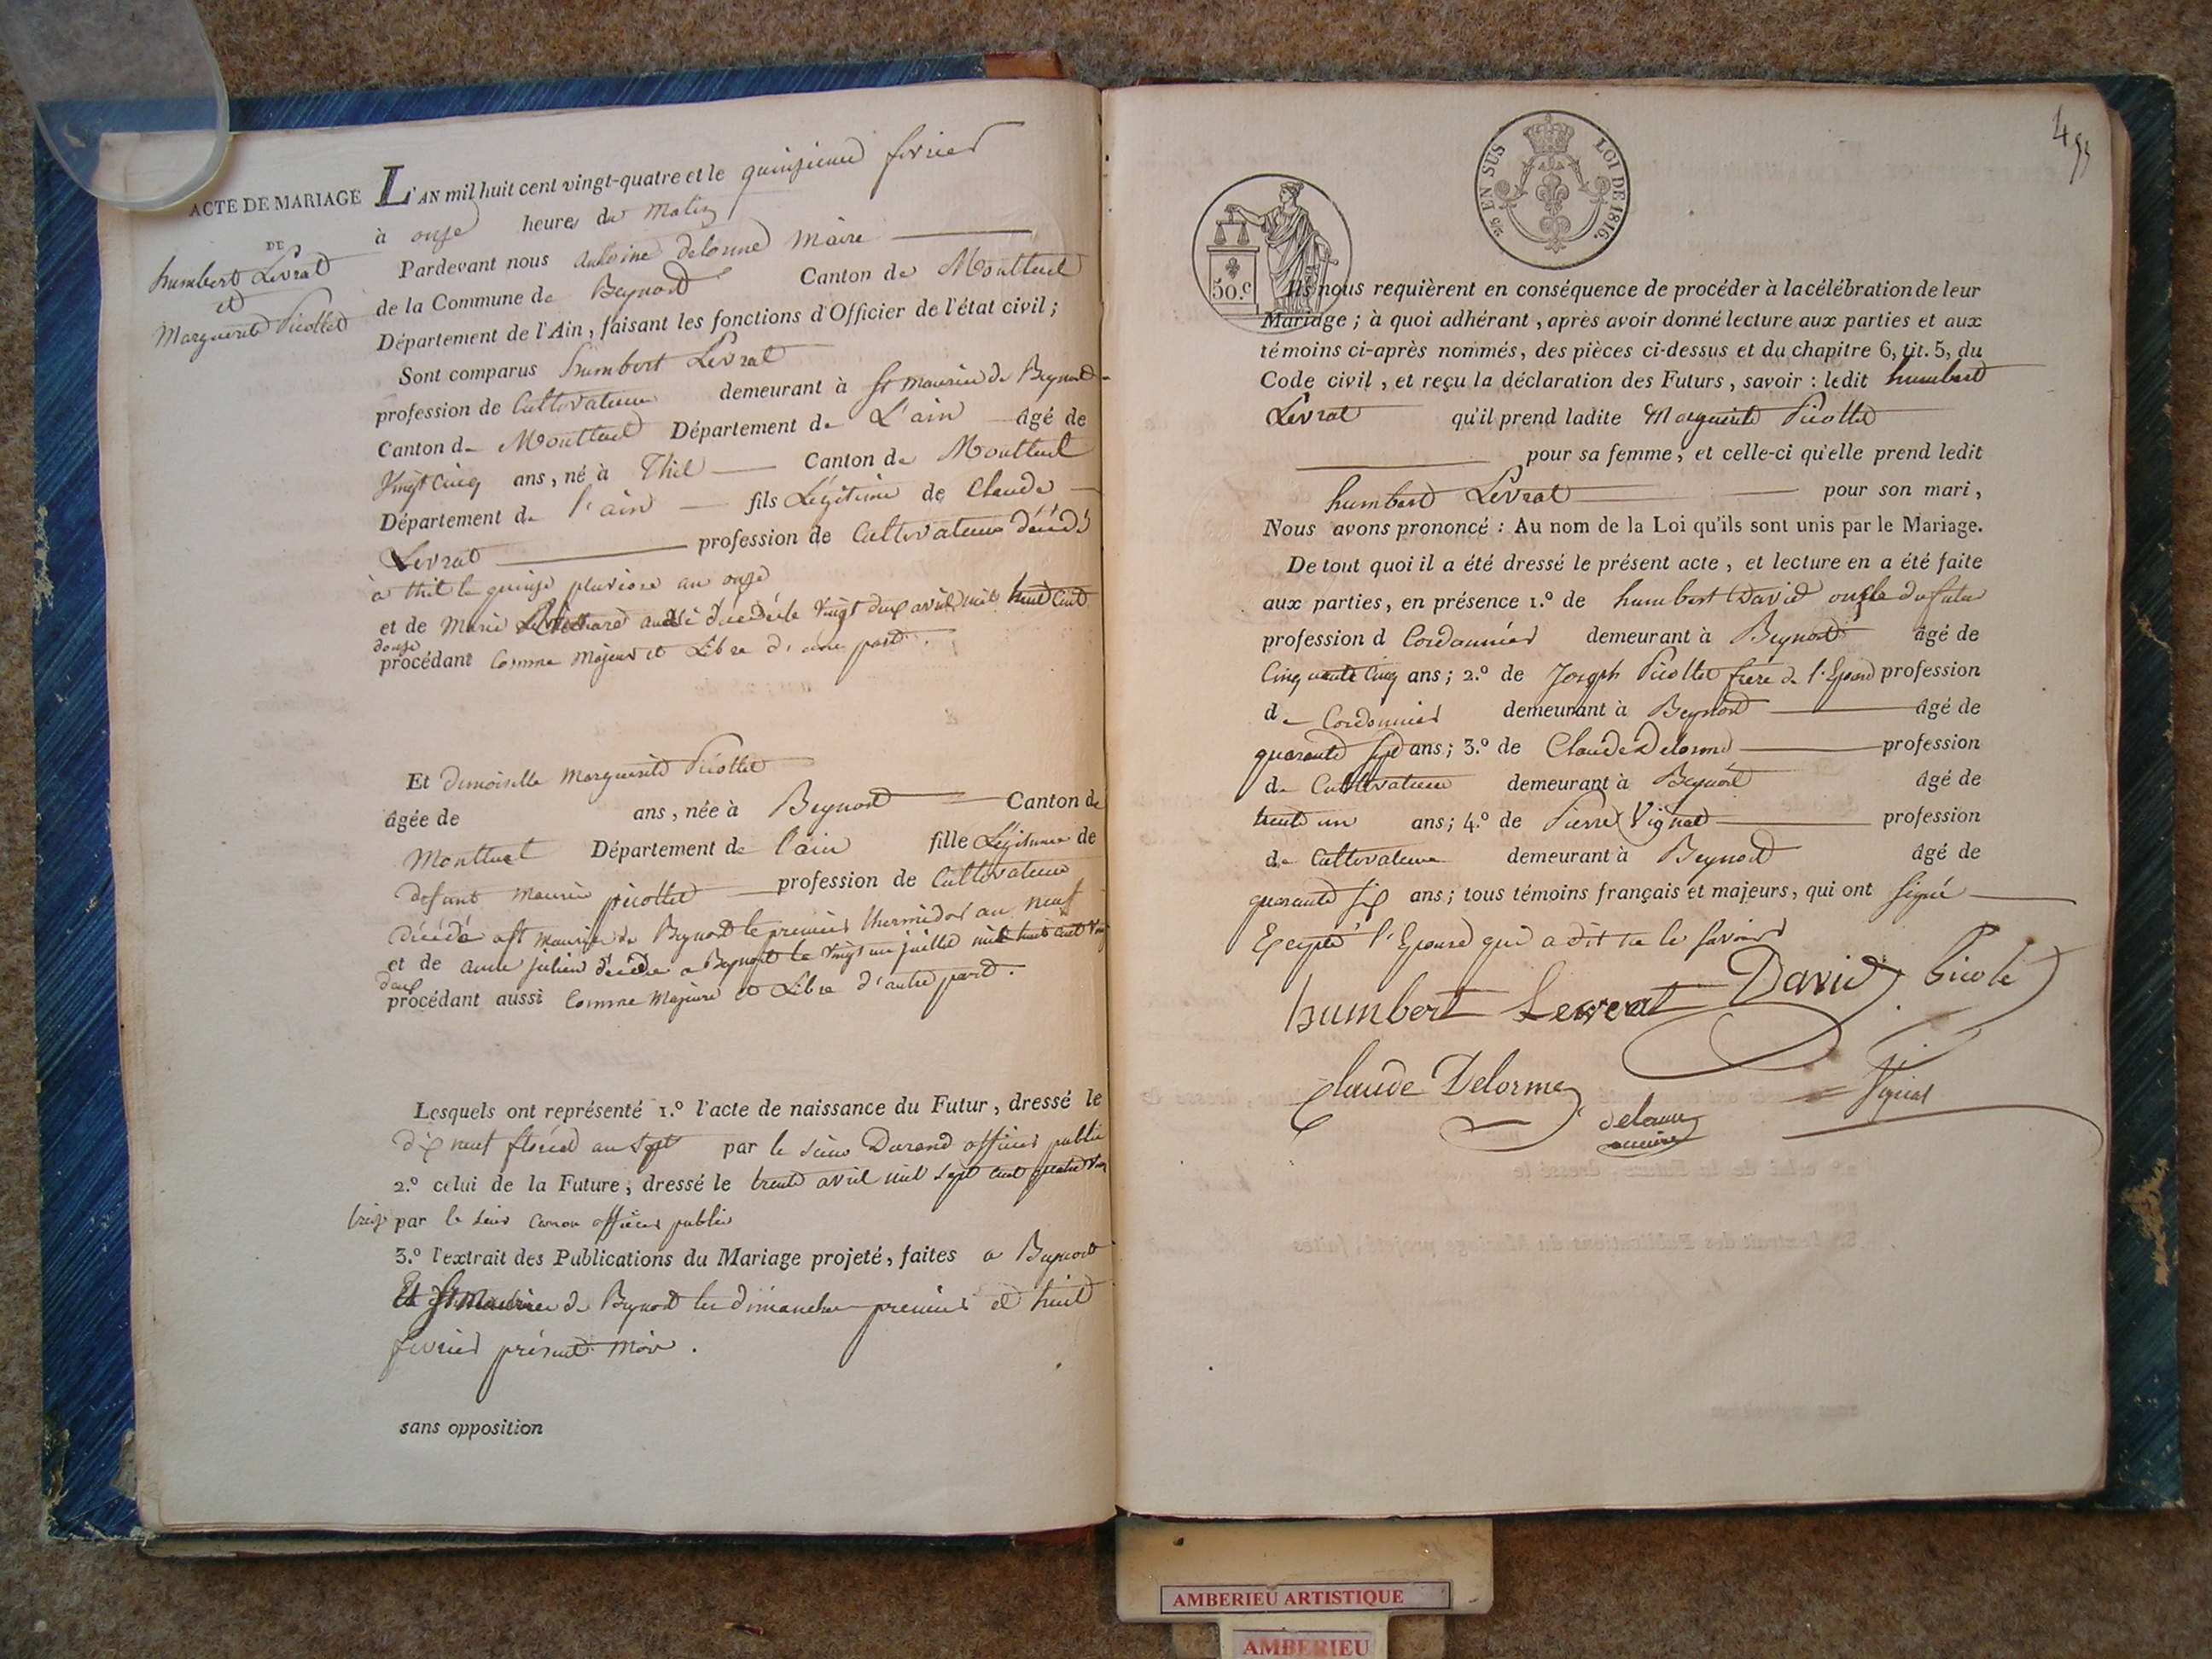 ACTE DE MARIAGE
DE
humbert Levrat
et
Marguerite Picollet
L'AN mil huit cent vingt-quatre et le quinzieme fevrier
à onze heures du Matin
Pardevant nous antoine delorme Maire
de la Commune de Beynost Canton de Montluel
Département de l'Ain, faisant les fonctions d'Officier de l'état civil;
Sont comparus humbert Levrat
profession de Cultivateur demeurant à St maurice de Beynost
Canton de Montluel Département de L'ain âgé de
Vingt Cinq ans, né à Thil Canton de Montluel
Département de l'ain fils Légitime de Claude
Levrat profession de Cultivateur décédé
à thil le quinze pluviose an onze
et de Marie aussi décédée le Vingt deux avril mil huit Cent
douze
procédant Comme Majeur et Libre d'une part.
Et demoiselle Marguerite Picollet
âgée de ans, née à Beynost Canton de
Montluel Département de l'ain fille Légitime de
defunt Maurice picollet profession de Cultivateur
décédé a St Maurice de Beynost le premier thermidor an neuf
et de anne julien décédée a Beynost le Vingt un juillet mil huit cent Vingt
deux
procédant aussi Comme Majeure et Libre d'autre part.
Lesquels ont représenté 1.º l'acte de naissance du Futur, dressé le
dix neuf floréal an sept par le sieur Durand officier public
2.º celui de la Future, dressé le trente avril mil sept cent quatre Vingt
treize par le sieur officier public
3.º l'extrait des Publications du Mariage projeté, faites a Beynost
Et St Maurice de Beynost les dimanches premier et huit
fevrier présent Mois.
sans opposition
495
5/10 EN SUS LOI DE 1816.
50.c
Ils nous requièrent en conséquence de procéder à la célébration de leur
Mariage; à quoi adhérant, après avoir donné lecture aux parties et aux
témoins ci-après nommés, des pièces ci-dessus et du chapitre 6, tit. 5, du
Code civil, et reçu la déclaration des Futurs, savoir: ledit humbert
Levrat qu'il prend ladite Marguerite Picollet
pour sa femme, et celle-ci qu'elle prend ledit
humbert Levrat pour son mari,
Nous avons prononcé: Au nom de la Loi qu'ils sont unis par le Mariage.
De tout quoi il a été dressé le présent acte, et lecture en a été faite
aux parties, en présence 1.º de humbert David oncle du futur
profession d Cordonnier demeurant à Beynost âgé de
Cinquante Cinq ans; 2.º de Joseph Picollet frère de l'Epouse profession
de Cordonnier demeurant à Beynost âgé de
quarante sept ans; 3.º de Claude Delorme profession
de Cultivateur demeurant à Beynost âgé de
trente un ans; 4.º de Pierre Vignat profession
de Cultivateur demeurant à Beynost âgé de
quarante six ans; tous témoins français et majeurs, qui ont signé
Excepté l'Epouse qui a dit ne le savoir
humbert Levrat David Picolé
Claude Delorme delorme Vignat
maire
AMBERIEU ARTISTIQUE
AMBERIEU